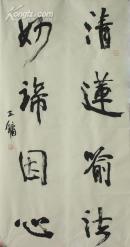 清蓮喻法
妙諦因心
王鏞